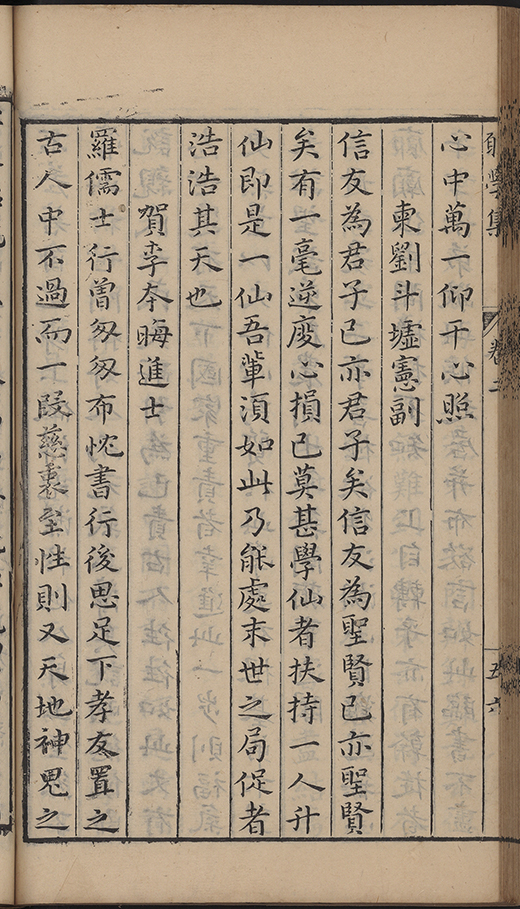 願學集 卷二 五六
心中萬一仰干心照
柬劉斗墟憲副
信友為君子已亦君子矣信友為聖賢已亦聖賢
矣有一毫逆度心損已莫甚學仙者扶持一人升
仙即是一仙吾輩須如此乃能處末世之局促者
浩浩其天也
賀李本晦進士
羅儒士行曽匆匆布忱書行後思足下孝友置之
古人中不過而一叚慈裏至性則又天地神鬼之